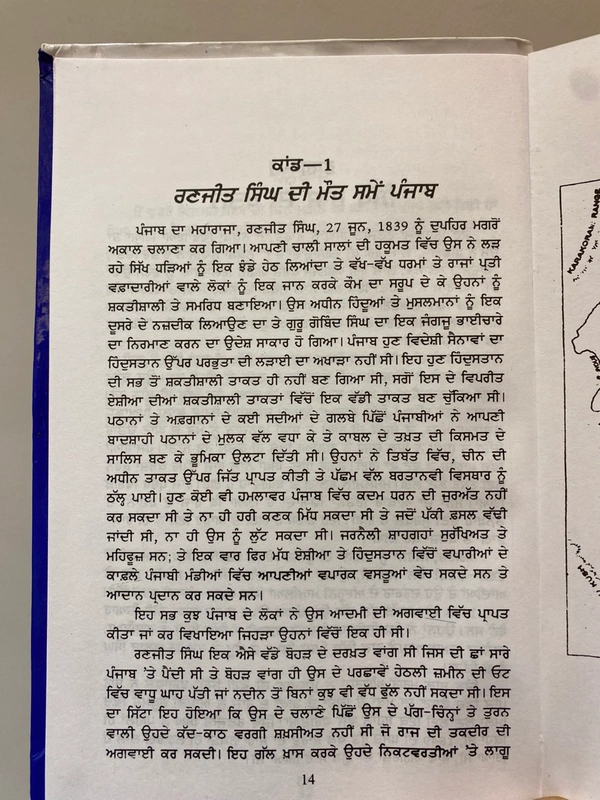 ਕਾਂਡ—1
ਰਣਜੀਤ ਸਿੰਘ ਦੀ ਮੌਤ ਸਮੇਂ ਪੰਜਾਬ
ਪੰਜਾਬ ਦਾ ਮਹਾਂਰਾਜਾ, ਰਣਜੀਤ ਸਿੰਘ, 27 ਜੂਨ, 1839 ਨੂੰ ਦੁਪਹਿਰ ਮਗਰੋਂ
ਅਕਾਲ ਚਲਾਣਾ ਕਰ ਗਿਆ। ਆਪਣੀ ਚਾਲੀ ਸਾਲਾਂ ਦੀ ਹਕੂਮਤ ਵਿੱਚ ਉਸ ਨੇ ਲੜ
ਰਹੇ ਸਿੱਖ ਧੜਿਆਂ ਨੂੰ ਇਕ ਝੰਡੇ ਹੇਠ ਲਿਆਂਦਾ ਤੇ ਵੱਖ-ਵੱਖ ਧਰਮਾਂ ਤੇ ਰਾਜਾਂ ਪ੍ਰਤੀ
ਵਫ਼ਾਦਾਰੀਆਂ ਵਾਲੇ ਲੋਕਾਂ ਨੂੰ ਇਕ ਜਾਨ ਕਰਕੇ ਕੌਮ ਦਾ ਸਰੂਪ ਦੇ ਕੇ ਉਹਨਾਂ ਨੂੰ
ਸ਼ਕਤੀਸ਼ਾਲੀ ਤੇ ਸਮਰਿਧ ਬਣਾਇਆ। ਉਸ ਅਧੀਨ ਹਿੰਦੂਆਂ ਤੇ ਮੁਸਲਮਾਨਾਂ ਨੂੰ ਇਕ
ਦੂਸਰੇ ਦੇ ਨਜ਼ਦੀਕ ਲਿਆਉਣ ਦਾ ਤੇ ਗੁਰੂ ਗੋਬਿੰਦ ਸਿੰਘ ਦਾ ਇਕ ਜੰਗਜੂ ਭਾਈਚਾਰੇ
ਦਾ ਨਿਰਮਾਣ ਕਰਨ ਦਾ ਉਦੇਸ਼ ਸਾਕਾਰ ਹੋ ਗਿਆ। ਪੰਜਾਬ ਹੁਣ ਵਿਦੇਸ਼ੀ ਸੈਨਾਵਾਂ ਦਾ
ਹਿੰਦੁਸਤਾਨ ਉੱਪਰ ਪਰਭੁਤਾ ਦੀ ਲੜਾਈ ਦਾ ਅਖਾੜਾ ਨਹੀਂ ਸੀ। ਇਹ ਹੁਣ ਹਿੰਦੁਸਤਾਨ
ਦੀ ਸਭ ਤੋਂ ਸ਼ਕਤੀਸ਼ਾਲੀ ਤਾਕਤ ਹੀ ਨਹੀਂ ਬਣ ਗਿਆ ਸੀ, ਸਗੋਂ ਇਸ ਦੇ ਵਿਪਰੀਤ
ਏਸ਼ੀਆ ਦੀਆਂ ਸ਼ਕਤੀਸ਼ਾਲੀ ਤਾਕਤਾਂ ਵਿੱਚੋਂ ਇਕ ਵੱਡੀ ਤਾਕਤ ਬਣ ਚੁੱਕਿਆ ਸੀ।
ਪਠਾਨਾਂ ਤੇ ਅਫ਼ਗਾਨਾਂ ਦੇ ਕਈ ਸਦੀਆਂ ਦੇ ਗਲਬੇ ਪਿੱਛੋਂ ਪੰਜਾਬੀਆਂ ਨੇ ਆਪਣੀ
ਬਾਦਸ਼ਾਹੀ ਪਠਾਨਾਂ ਦੇ ਮੁਲਕ ਵੱਲ ਵਧਾ ਕੇ ਤੇ ਕਾਬਲ ਦੇ ਤਖ਼ਤ ਦੀ ਕਿਸਮਤ ਦੇ
ਸਾਲਿਸ ਬਣ ਕੇ ਭੂਮਿਕਾ ਉਲਟਾ ਦਿੱਤੀ ਸੀ। ਉਹਨਾਂ ਨੇ ਤਿਬੱਤ ਵਿੱਚ, ਚੀਨ ਦੀ
ਅਧੀਨ ਤਾਕਤ ਉੱਪਰ ਜਿੱਤ ਪ੍ਰਾਪਤ ਕੀਤੀ ਤੇ ਪੱਛਮ ਵੱਲ ਬਰਤਾਨਵੀ ਵਿਸਥਾਰ ਨੂੰ
ਠੱਲ੍ਹ ਪਾਈ। ਹੁਣ ਕੋਈ ਵੀ ਹਮਲਾਵਰ ਪੰਜਾਬ ਵਿੱਚ ਕਦਮ ਧਰਨ ਦੀ ਜੁਰਅੱਤ ਨਹੀਂ
ਕਰ ਸਕਦਾ ਸੀ ਤੇ ਨਾ ਹੀ ਹਰੀ ਕਣਕ ਮਿੱਧ ਸਕਦਾ ਸੀ ਤੇ ਜਦੋਂ ਪੱਕੀ ਫ਼ਸਲ ਵੱਢੀ
ਜਾਂਦੀ ਸੀ, ਨਾ ਹੀ ਉਸ ਨੂੰ ਲੁੱਟ ਸਕਦਾ ਸੀ। ਜਰਨੈਲੀ ਸ਼ਾਹਰਾਹਾਂ ਸੁਰੱਖਿਅਤ ਤੇ
ਮਹਿਫੂਜ਼ ਸਨ; ਤੇ ਇਕ ਵਾਰ ਫਿਰ ਮੱਧ ਏਸ਼ੀਆ ਤੇ ਹਿੰਦੁਸਤਾਨ ਵਿੱਚੋਂ ਵਪਾਰੀਆਂ ਦੇ
ਕਾਫ਼ਲੇ ਪੰਜਾਬੀ ਮੰਡੀਆਂ ਵਿੱਚ ਆਪਣੀਆਂ ਵਪਾਰਕ ਵਸਤੂਆਂ ਵੇਚ ਸਕਦੇ ਸਨ ਤੇ
ਆਦਾਨ ਪ੍ਰਦਾਨ ਕਰ ਸਕਦੇ ਸਨ।
ਇਹ ਸਭ ਕੁਝ ਪੰਜਾਬ ਦੇ ਲੋਕਾਂ ਨੇ ਉਸ ਆਦਮੀ ਦੀ ਅਗਵਾਈ ਵਿੱਚ ਪ੍ਰਾਪਤ
ਕੀਤਾ ਜਾਂ ਕਰ ਵਿਖਾਇਆ ਜਿਹੜਾ ਉਹਨਾਂ ਵਿੱਚੋਂ ਇਕ ਹੀ ਸੀ।
ਰਣਜੀਤ ਸਿੰਘ ਇਕ ਐਸੇ ਵੱਡੇ ਬੋਹੜ ਦੇ ਦਰਖ਼ਤ ਵਾਂਗ ਸੀ ਜਿਸ ਦੀ ਛਾਂ ਸਾਰੇ
ਪੰਜਾਬ ’ਤੇ ਪੈਂਦੀ ਸੀ ਤੇ ਬੋਹੜ ਵਾਂਗ ਹੀ ਉਸ ਦੇ ਪਰਛਾਵੇਂ ਹੇਠਲੀ ਜ਼ਮੀਨ ਦੀ ਓਟ
ਵਿੱਚ ਵਾਧੂ ਘਾਹ ਪੱਤੀ ਜਾਂ ਨਦੀਨ ਤੋਂ ਬਿਨਾਂ ਕੁਝ ਵੀ ਵੱਧ ਫੁੱਲ ਨਹੀਂ ਸਕਦਾ ਸੀ। ਇਸ
ਦਾ ਸਿੱਟਾ ਇਹ ਹੋਇਆ ਕਿ ਉਸ ਦੇ ਚਲਾਣੇ ਪਿੱਛੋਂ ਉਸ ਦੇ ਪੱਗ-ਚਿੰਨ੍ਹਾਂ ਤੇ ਤੁਰਨ
ਵਾਲੀ ਉਹਦੇ ਕੱਦ-ਕਾਠ ਵਰਗੀ ਸ਼ਖ਼ਸੀਅਤ ਨਹੀਂ ਸੀ ਜੋ ਰਾਜ ਦੀ ਤਕਦੀਰ ਦੀ
ਅਗਵਾਈ ਕਰ ਸਕਦੀ। ਇਹ ਗੱਲ ਖ਼ਾਸ ਕਰਕੇ ਉਹਦੇ ਨਿਕਟਵਰਤੀਆਂ ’ਤੇ ਲਾਗੂ
14
KARAKORAM RANGE